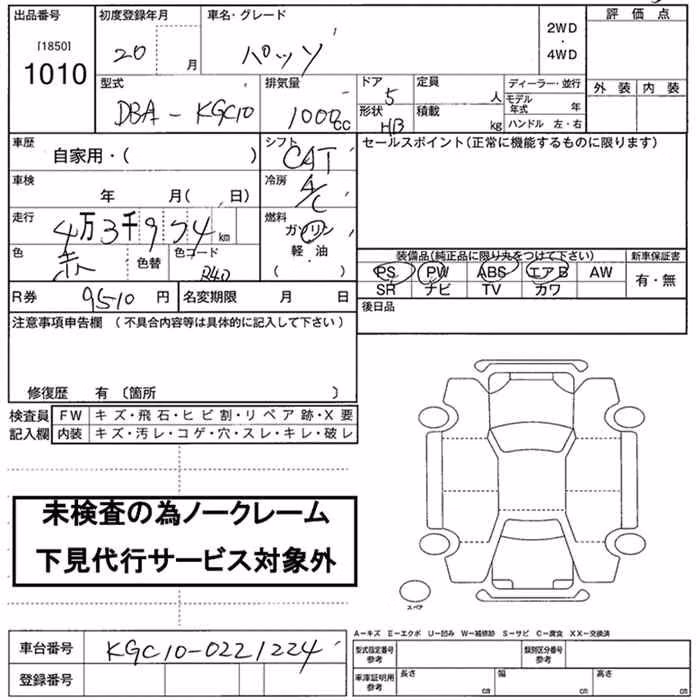 出品番号 初度登録年月 車名・グレード 評価点
[1850] 20 月 パッソ 2WD
1010 ・
4WD
型式 排気量 ドア 5 定員 人 ディーラー・並行 外装 内装
DBA-KGC10 1000cc 形状 HB 積載 kg モデル年式 年
ハンドル 左・右
車歴 自家用・( ) シフト CAT セールスポイント(正常に機能するものに限ります)
車検 年 月( 日) 冷房 A/C
走行 4万3千9 4 km 燃料 ガソリン
軽・油
( )
色 赤 色替 色コード R40 装備品(純正品に限り丸をつけて下さい) 新車保証書
PS PW ABS エアB AW 有・無
SR ナビ TV カワ
R券 9510 円 名変期限 月 日 後日品
注意事項申告欄 (不具合内容等は具体的に記入して下さい)
修復歴 有 〔箇所 〕
検査員 FW キズ・飛石・ヒビ割・リペア跡・X要
記入欄 内装 キズ・汚レ・コゲ・穴・スレ・キレ・破レ
未検査の為ノークレーム
下見代行サービス対象外
スペア
A-キズ E-エクボ U-凹み W-補修跡 S-サビ C-腐食 XX-交換済
車台番号 KGC10-0221224 型式指定番号 参考 類別区分番号 参考
登録番号 車庫証明用 参考 長さ cm 幅 cm 高さ cm